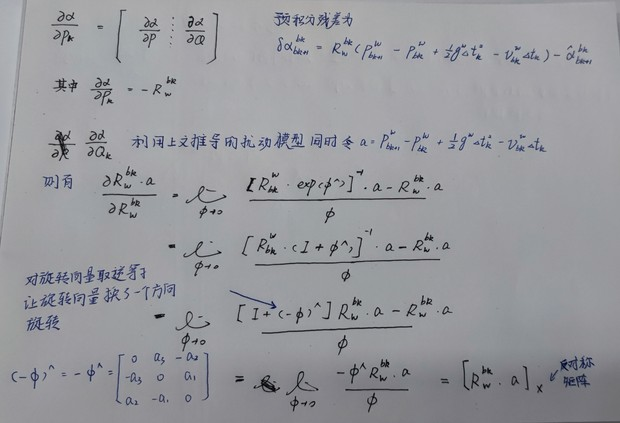 ∂α/∂P_k = [ ∂α/∂P ⋮ ∂α/∂Q ]
预积分残差为
δα^{bk}_{bk+1} = R^{bk}_w (P^w_{bk+1} - P^w_{bk} + ½g^wΔt_k² - v^w_{bk}Δt_k) - α̂^{bk}_{bk+1}
其中 ∂α/∂P_k = -R^{bk}_w
∂α/∂Q_k 利用上文推导的扰动模型同时令 a = P^w_{bk+1} - P^w_{bk} + ½g^wΔt_k² - v^w_{bk}Δt_k
则有 ∂R^{bk}_w·a / ∂R^{bk}_w = lim_{ϕ→0} ([R^w_{bk}·exp(ϕ^)]^{-1}·a - R^{bk}_w·a) / ϕ
= lim_{ϕ→0} ([R^w_{bk}·(I+ϕ^)]^{-1}·a - R^{bk}_w·a) / ϕ
对旋转向量取逆等于
让旋转向量换了一个方向
旋转
= lim_{ϕ→0} ([I+(-ϕ)^]R^{bk}_w·a - R^{bk}_w·a) / ϕ
(-ϕ)^ = -ϕ^ = [ 0 a₃ -a₂
-a₃ 0 a₁
a₂ -a₁ 0 ]
= lim_{ϕ→0} (-ϕ^R^{bk}_w·a) / ϕ = [R^{bk}_w·a]_×
反对称
矩阵